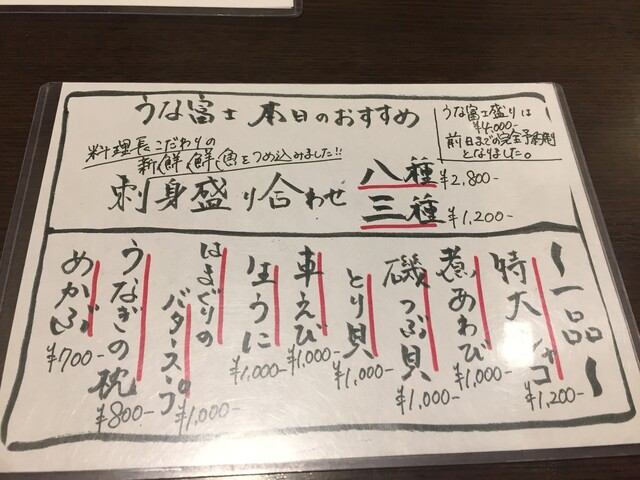 うな富士 本日のおすすめ
うな富士盛りは
¥4,000-
前日までの完全予約制
となりました。
料理長こだわりの
新鮮鮮魚をつめ込みました!!
刺身盛り合わせ
八種 ¥2,800-
三種 ¥1,200-
~一品~
特大シャコ ¥1,200-
煮あわび ¥1,000-
磯つぶ貝 ¥1,000-
とり貝 ¥1,000-
車えび ¥1,000-
生うに ¥1,000-
はまぐりの
バタースープ ¥1,000-
うなぎの枕 ¥800-
めかぶ ¥700-